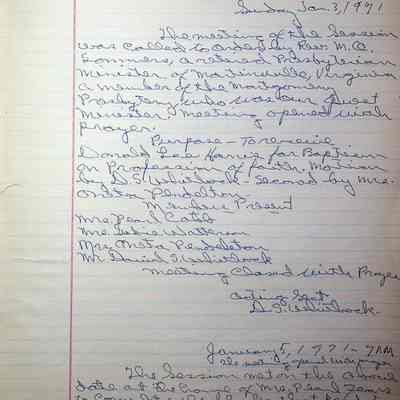 Sunday Jan. 3, 1971
The meeting of the Session
was called to order by Rev. M.A.
Sommers, a retired Presbyterian
Minister of Martinsville, Virginia
a member of the Montgomery
Presbytery who was our Guest
Minister. Meeting opened with
prayer.
Purpose - To receive
Donald Lee Harris for Baptism
on Profession of faith. Motion
by D.T. Whitlock - Second by Mrs.
Pendleton
Members Present
Mrs. Pearl Cabb
Mrs. Watterson
Mrs. Meta Pendleton
Mr. David T. Whitlock
Meeting Closed with Prayer
Acting Sect.
D.T. Whitlock.
January 5, 1971 - 7 PM
The meeting opened with prayer
The Session met on the above
date at the home of Mrs. Pearl
to